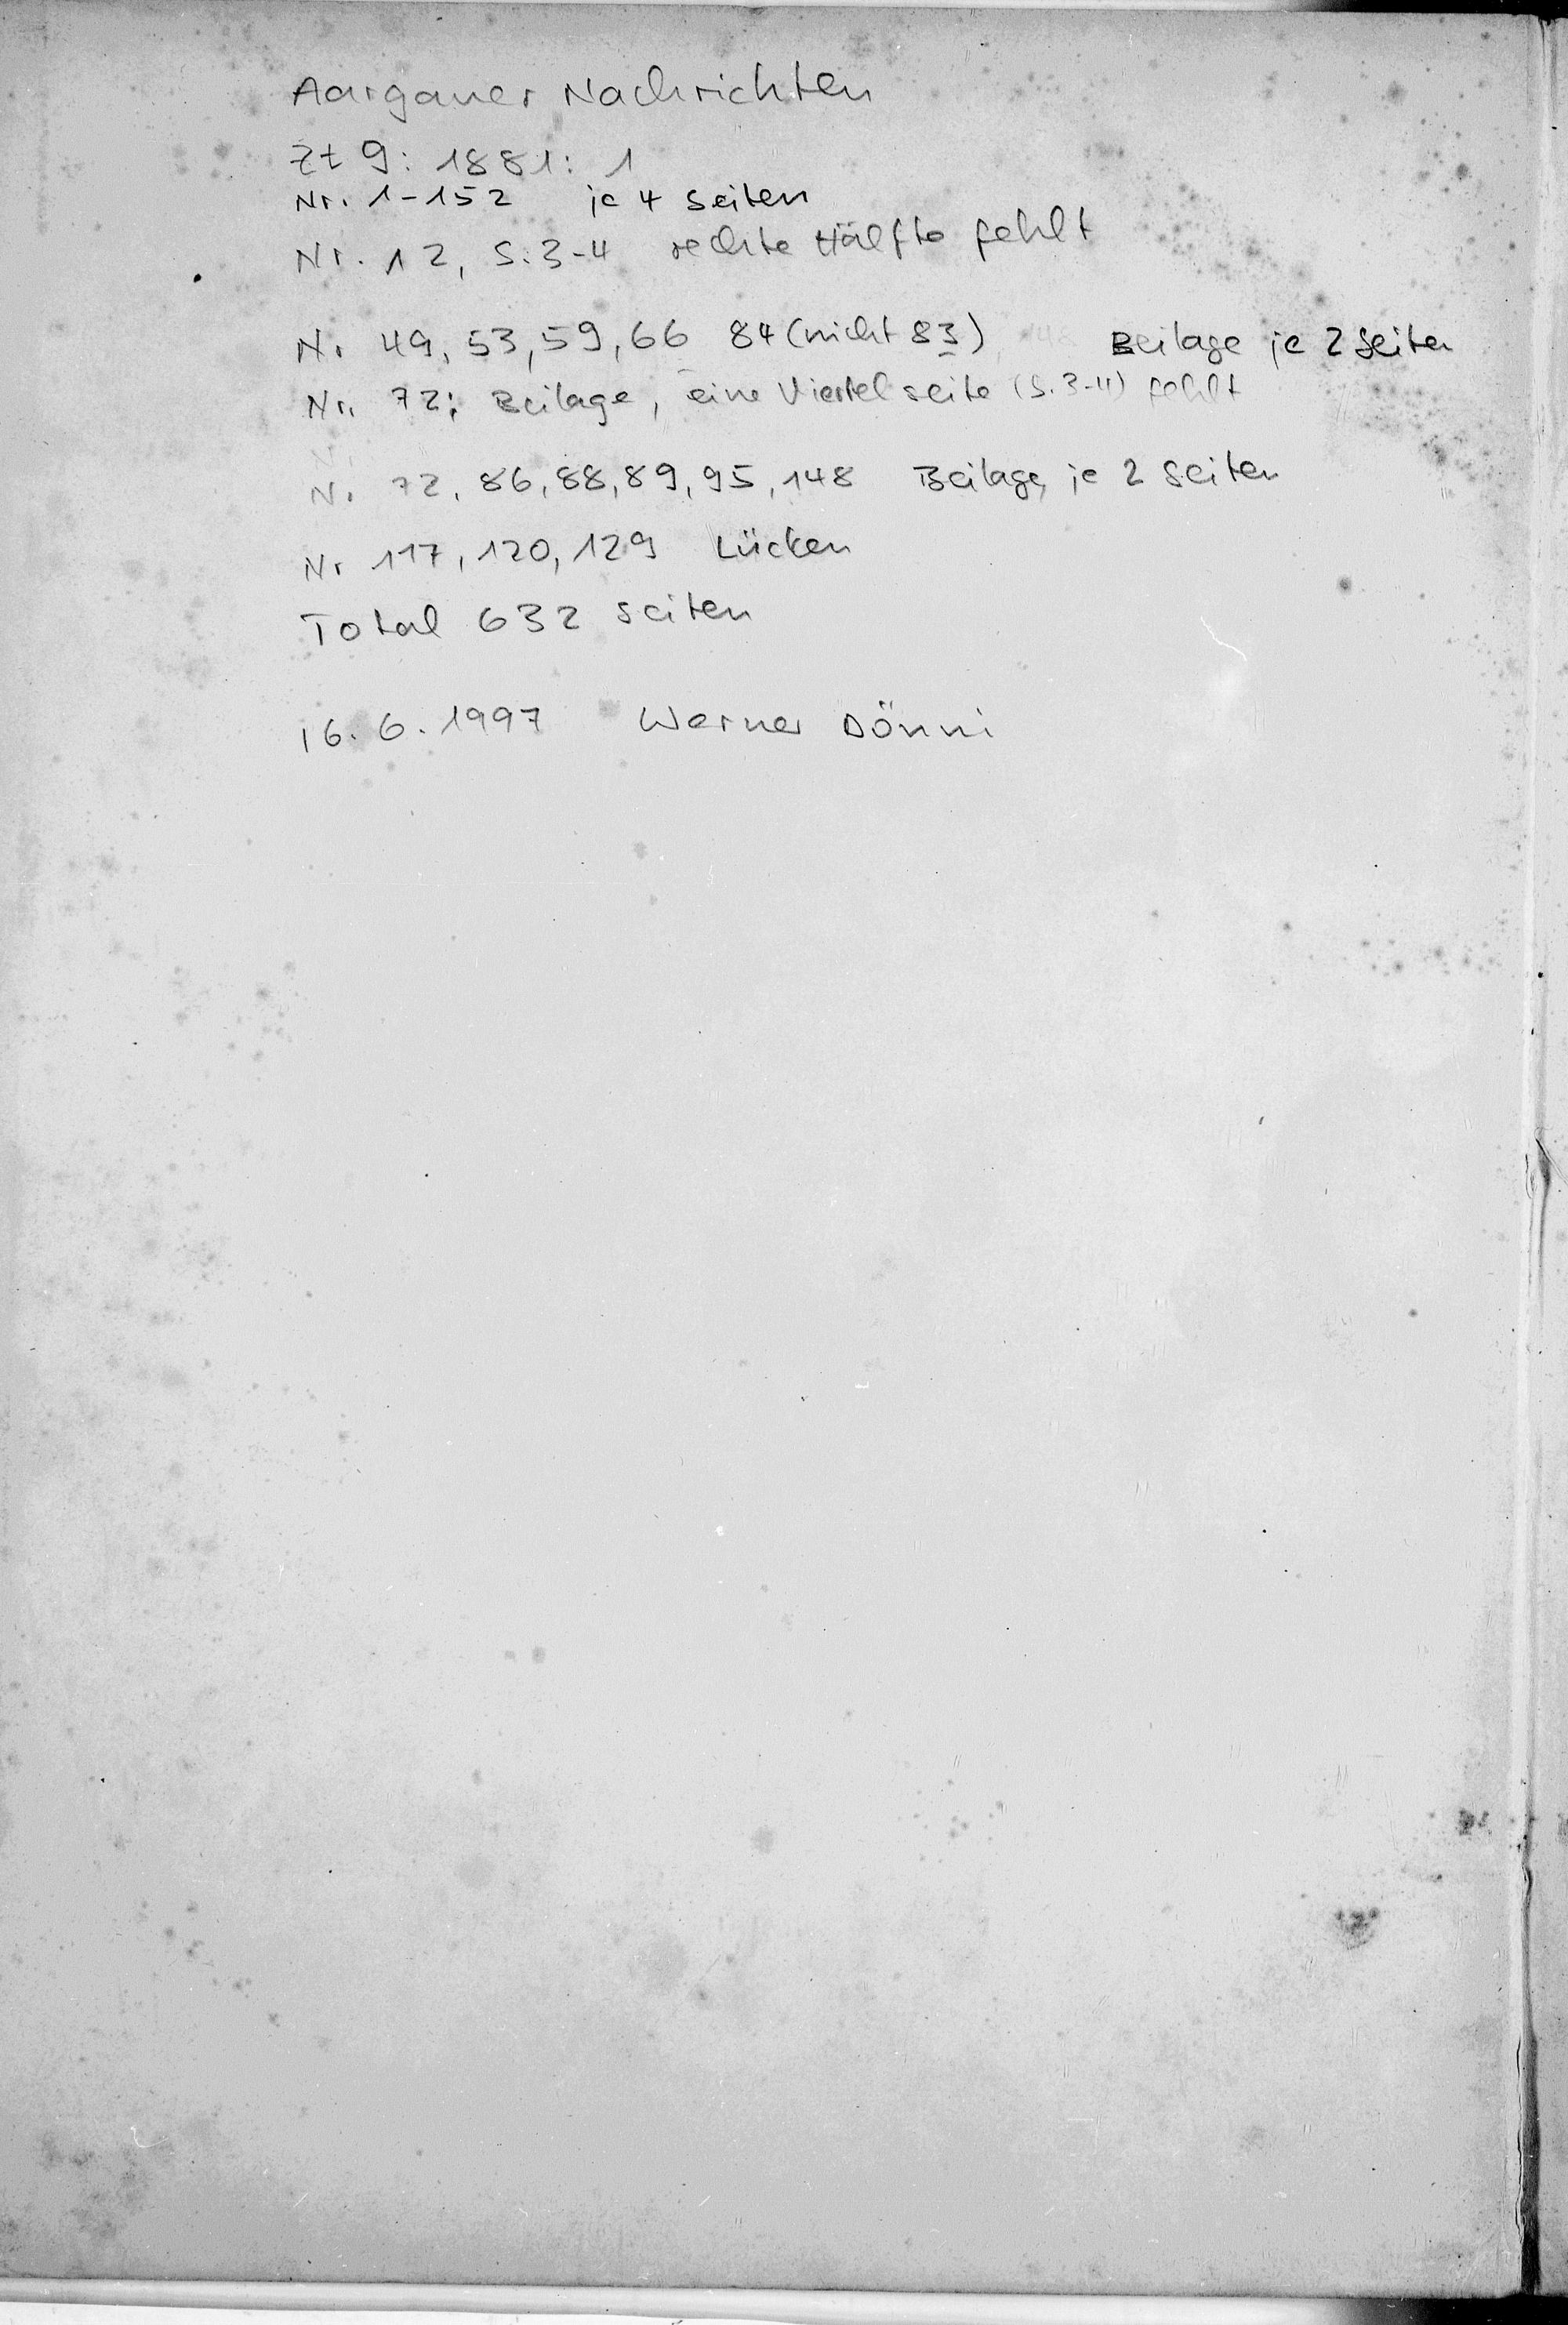 Aargauer Nachrichten
Zt 9: 1881: 1
Nr. 1-152 je 4 Seiten
Nr. 12, S. 3-4 rechte Hälfte fehlt
Nr 49, 53, 59, 66 84 (nicht 83) Beilage je 2 Seiten
Nr. 72: Beilage, eine Viertelseite (S. 3-4) fehlt
Nr 72, 86, 88, 89, 95, 148 Beilage je 2 Seiten
Nr 117, 120, 129 Lücken
Total 632 Seiten
16. 6. 1997 Werner Dönni